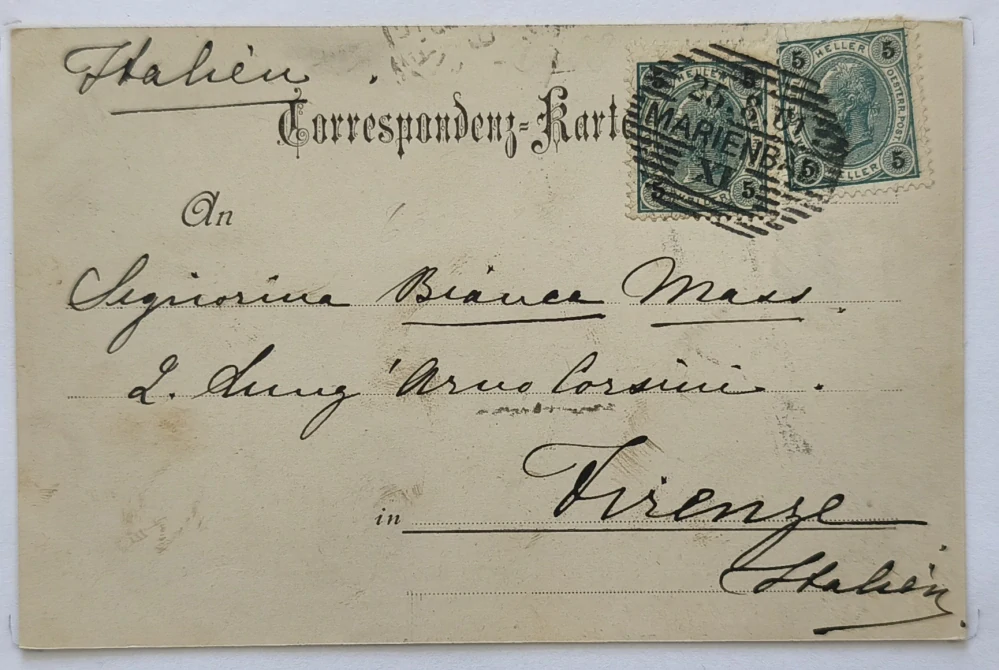 Italien
Correspondenz-Karte
5 HELLER 5
5 HELLER 5
OESTERR. POST
5 HELLER 5
25 8 01
MARIENBAD
XI
An
Signorina Bianca Mass
2. Lung'Arno Corsini.
in Firenze
Italien